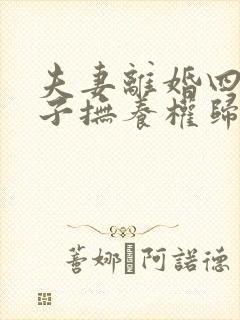 夫妻離婚四
子撫養權歸
蓍娜 阿諾德